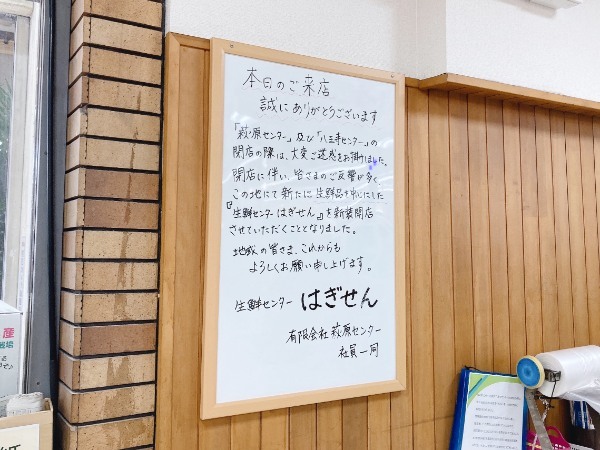 本日のご来店
誠にありがとうございます
「萩原センター」及び「八王寺センター」の
閉店の際は、大変ご迷惑をお掛けしました。
閉店に伴い、皆さまのご反響が多く、
この地にて新たに生鮮品を中心にした
『生鮮センターはぎせん』を新装開店
させていただくこととなりました。
地域の皆さま、これからも
よろしくお願い申し上げます。
生鮮センター はぎせん
有限会社 萩原センター
社員一同
産